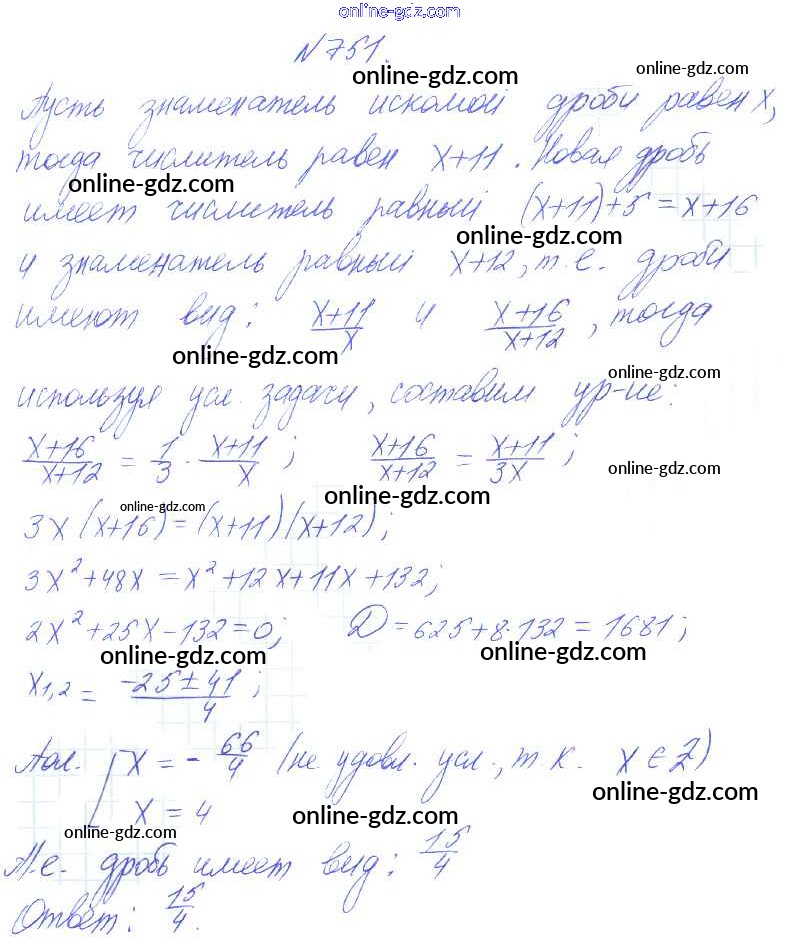 online-gdz.com
N751.
online-gdz.com
online-gdz.com
Пусть знаменатель искомой дроби равен x,
тогда числитель равен x+11. Новая дробь
online-gdz.com
online-gdz.com
имеет числитель равный (x+11)+5=x+16
online-gdz.com
и знаменатель равный x+12, т.е. дроби
имеют вид: \frac{x+11}{x} и \frac{x+16}{x+12}, тогда
online-gdz.com
online-gdz.com
используя усл. задачи, составим ур-ие:
\frac{x+16}{x+12} = \frac{1}{3} · \frac{x+11}{x}; \frac{x+16}{x+12} = \frac{x+11}{3x};
online-gdz.com
online-gdz.com
online-gdz.com
3x(x+16)=(x+11)(x+12);
3x²+48x=x²+12x+11x+132;
2x²+25x-132=0; D=625+8·132=1681;
online-gdz.com
online-gdz.com
x₁,₂ = \frac{-25±41}{4};
x = -\frac{66}{4} (не удовл. усл., т.к. x∈Z)
x = 4
online-gdz.com
online-gdz.com
online-gdz.com
Т.е. дробь имеет вид: \frac{15}{4}
online-gdz.com
Ответ: \frac{15}{4}.